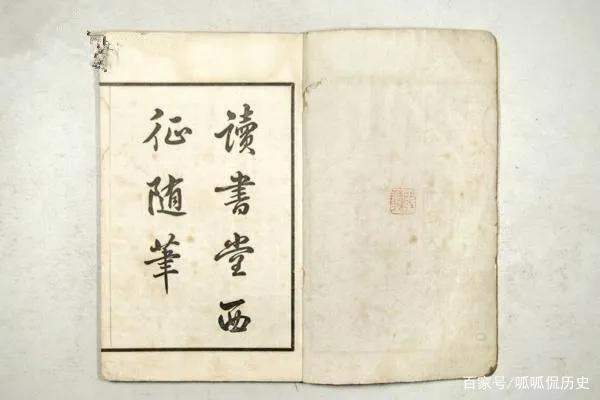 讀書堂西
征随筆
百家号/呱呱侃历史